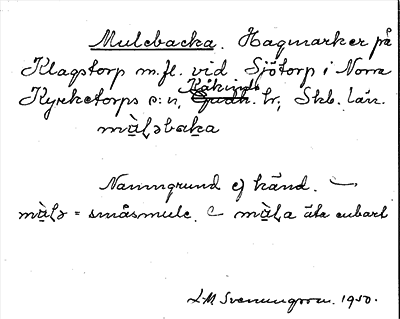 Mulebacka. Hagmarker på
Klagstorp m.fl. vid Sjötorp i Norra
Kåkinds
Kyrketorps s:n, Gudh. hr, Skb. län.
mùlǝbaka
Namngrund ej känd. —
mùlǝ = småsmule. mùla äta enbart
LM Svenungsson. 1950.